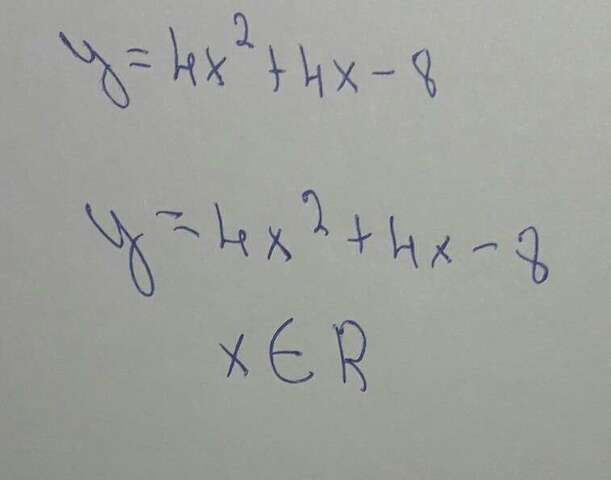 y = 4x² + 4x - 8
y = 4x² + 4x - 8
x ∈ R